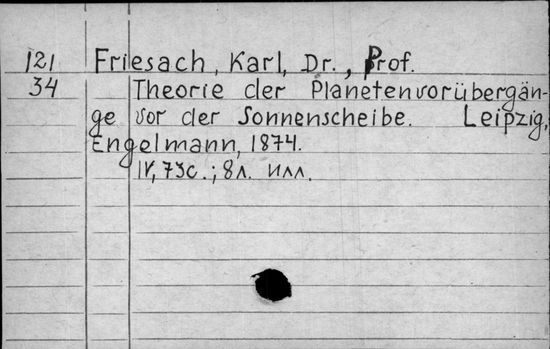 121 Friesach, Karl, Dr., Prof.
34 Theorie der Planetenvorübergän-
ge vor der Sonnenscheibe. Leipzig,
Engelmann, 1874.
IV, 73с.; 8л. илл.